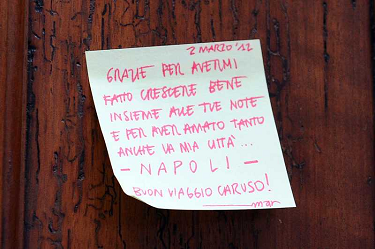 2 MARZO '12
GRAZIE PER AVERMI
FATTO CRESCERE BENE
INSIEME ALLE TUE NOTE
E PER AVER AMATO TANTO
ANCHE LA MIA CITTÀ...
— NAPOLI —
BUON VIAGGIO CARUSO!
mar